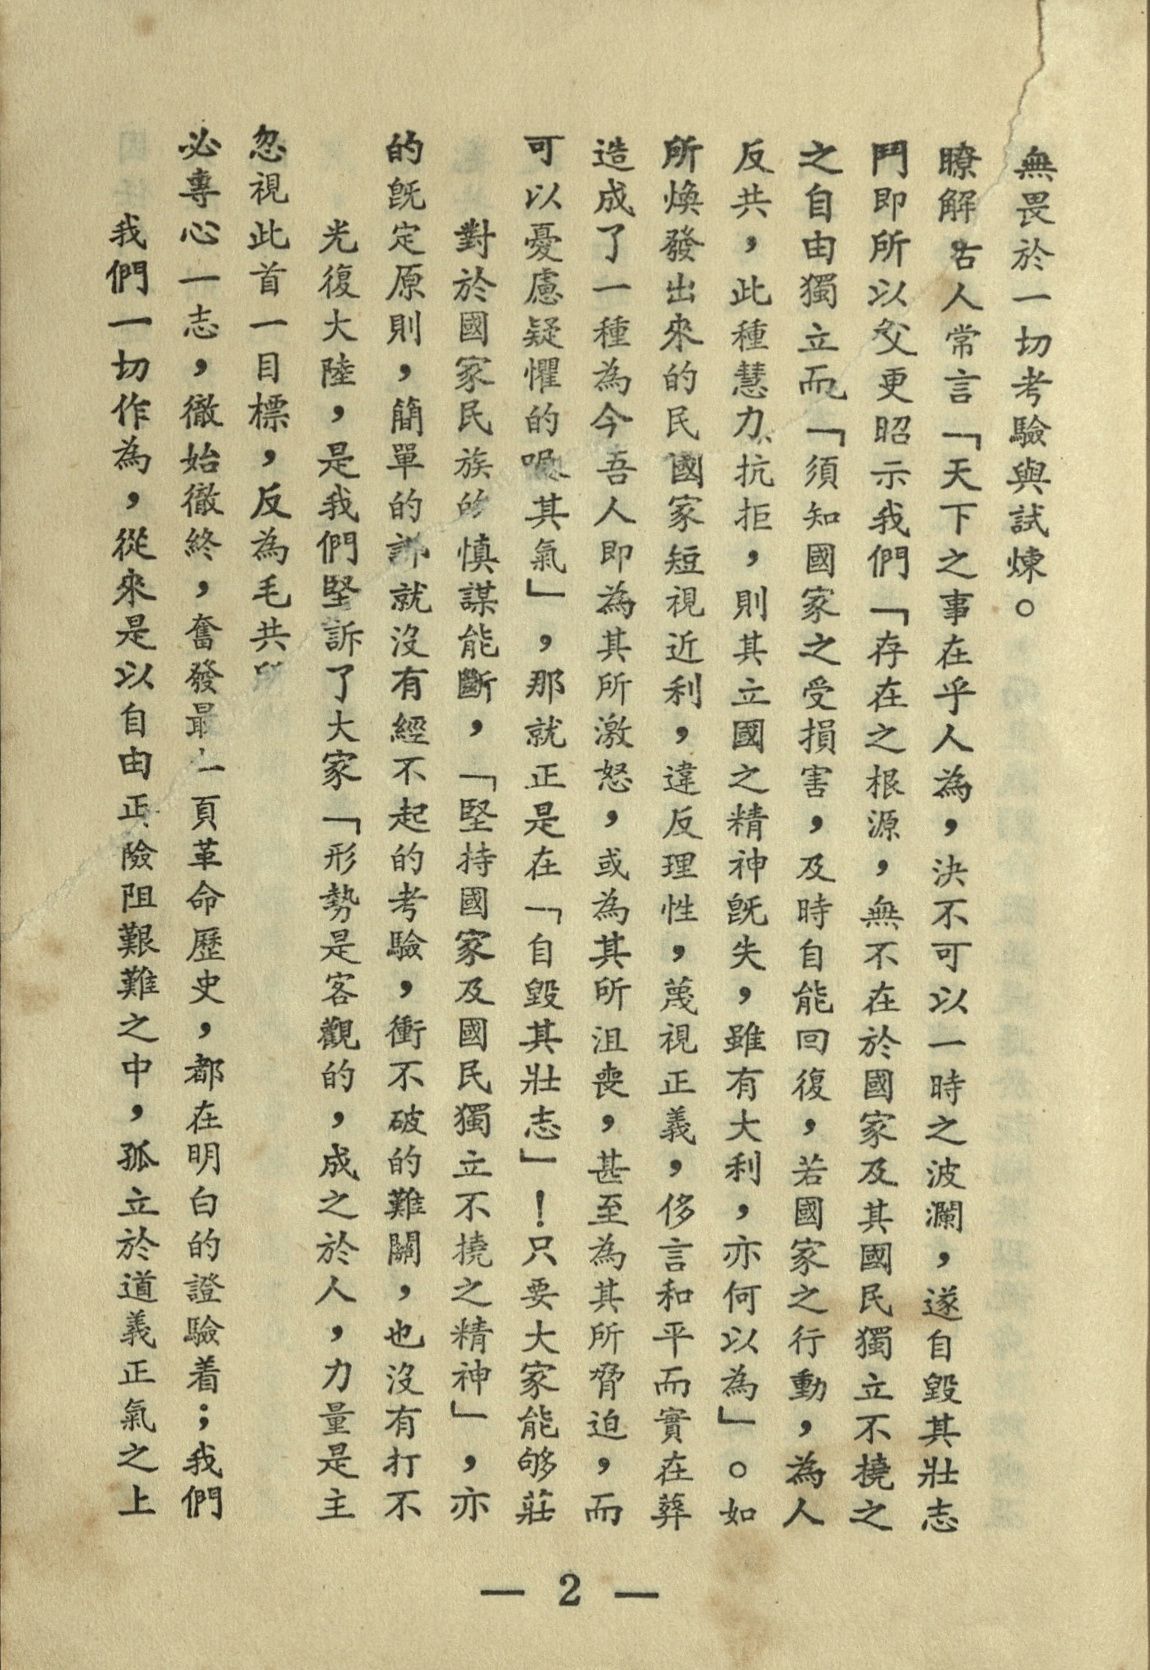 無畏於一切考驗與試煉。
瞭解,古人常言「天下之事在乎人為,決不可以一時之波瀾,遂自毀其壯志
鬥即所以父更昭示我們「存在之根源,無不在於國家及其國民獨立不撓之
之自由獨立而「須知國家之受損害,及時自能回復,若國家之行動,為人
反共,此種慧力抗拒,則其立國之精神旣失,雖有大利,亦何以為」。如
所煥發出來的民國家短視近利,違反理性,蔑視正義,侈言和平而實在葬
造成了一種為今吾人即為其所激怒,或為其所沮喪,甚至為其所脅迫,而
可以憂慮疑懼的喂其氣」,那就正是在「自毀其壯志」!只要大家能够莊
對於國家民族的慎謀能斷,「堅持國家及國民獨立不撓之精神」,亦
的旣定原則,簡單的就沒有經不起的考驗,衝不破的難關,也沒有打不
光復大陸,是我們堅訴了大家「形勢是客觀的,成之於人,力量是主
忽視此首一目標,反為毛共
必專心一志,徹始徹終,奮發最一頁革命歷史,都在明白的證驗着;我們
我們一切作為,從來是以自由正險阻艱難之中,孤立於道義正氣之上
— 2 —